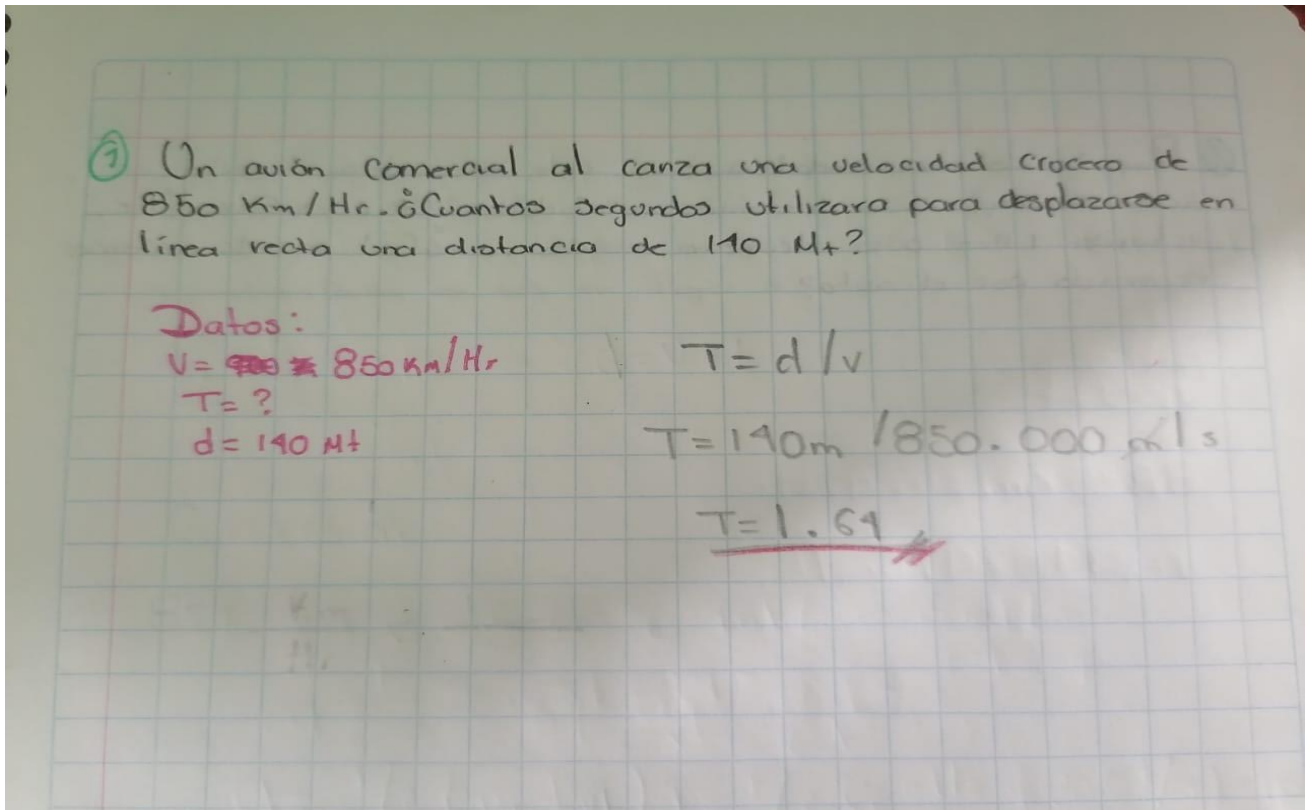 1 Un avión Comercial al canza una velocidad crocero de
850 Km/Hr. ¿Cuantos segundos utilizara para desplazarse en
línea recta una distancia de 140 Mt?
Datos:
V= 850 Km/Hr
T= ?
d= 140 Mt
T= d/v
T= 140m /850.000 m/s
T= 1.64